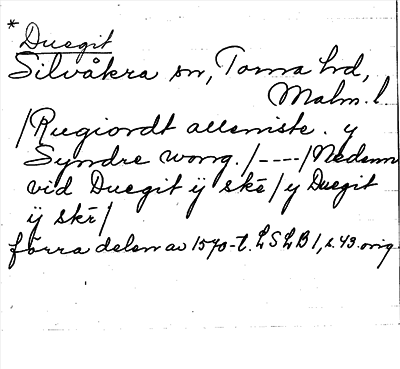 *Duegit
Silvåkra sn, Torna hd,
Malm. l
/Rugiordt allemiste. y
Syndre wong. /----/Nedenn
vid Duegit ÿ skē/y Duegit
ÿ skē/
förra delen av 1570-t. LSLB1, s. 43. orig